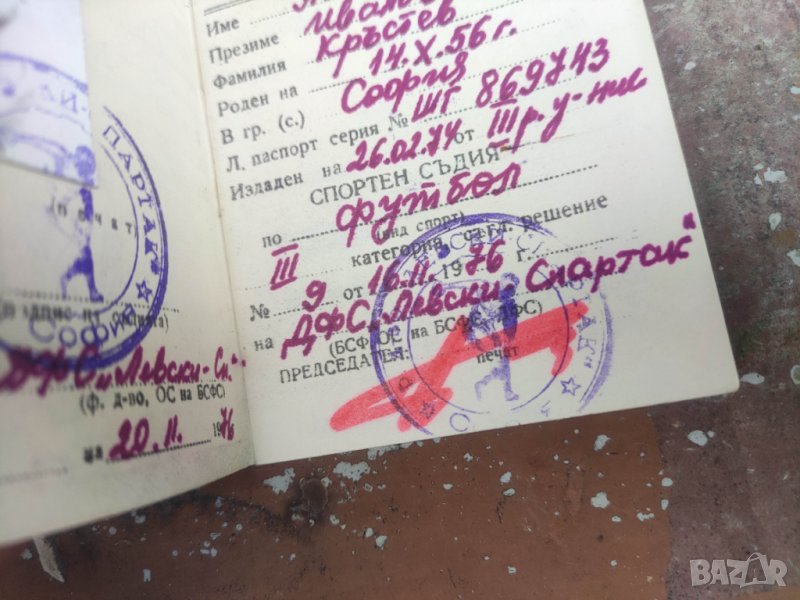 ПАРТАК"
(печат)
СОФИЯ
ДФС „Левски-Сп."
(ф. д-во, ОС на БСФС)
на 20.II. 1976
Име
Презиме
Фамилия Кръстев
Роден на 14.X.56 г.
В гр. (с.) София
Л. паспорт серия № ШГ 869743
Издаден на 26.02.74 от III р. у-ние
СПОРТЕН СЪДИЯ
по футбол
(вид спорт)
III категория, съгл. решение
№ 9 от 16.II. 1976 г.
на ДФС „Левски-Спартак"
(БСФС, ОС на БСФС, ДФС)
ПРЕДСЕДАТЕЛ:
печат
BAZAR